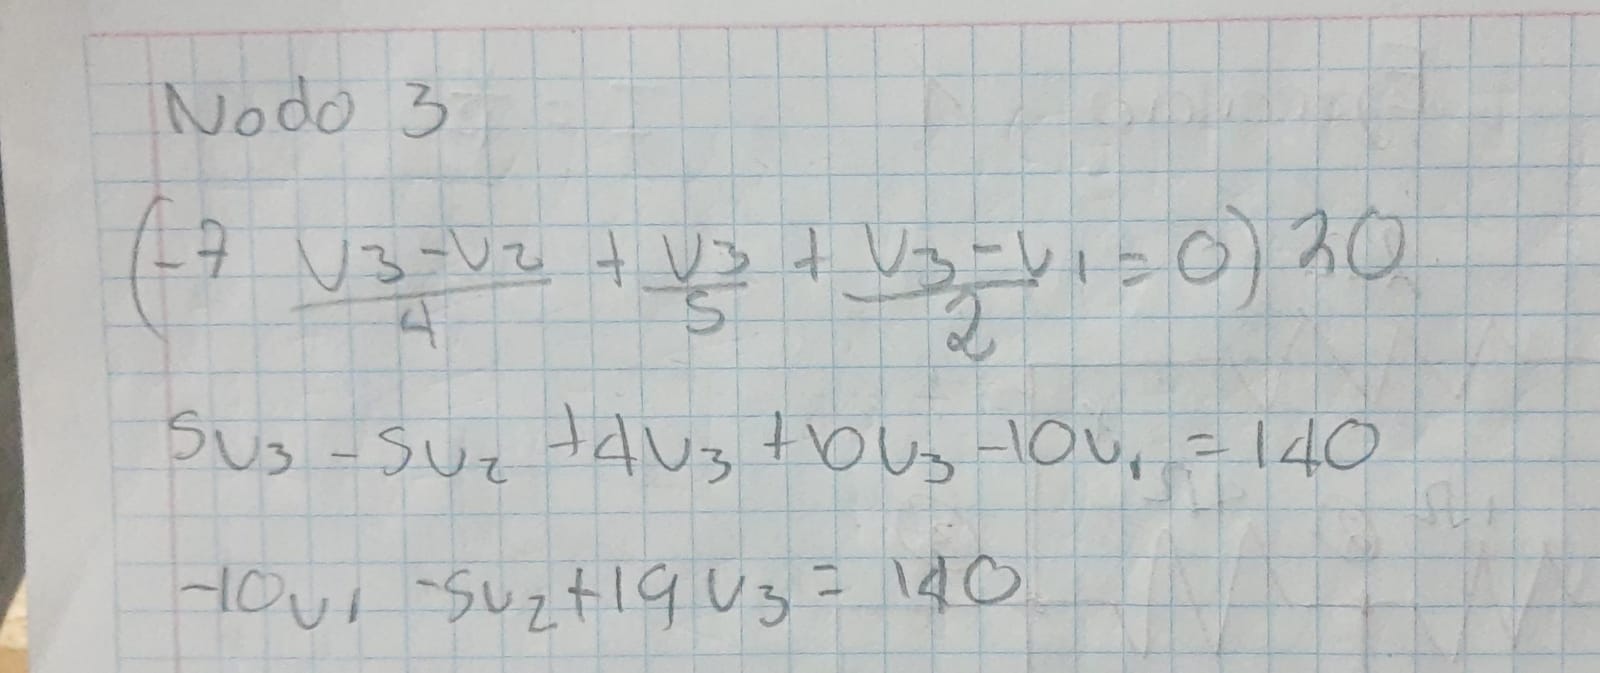 Nodo 3
(-7 (V3-V2)/4 + V3/5 + (V3-V1)/2 = 0) 20
5V3 - 5V2 + 4V3 + 10V3 - 10V1 = 140
-10V1 - 5V2 + 19V3 = 140